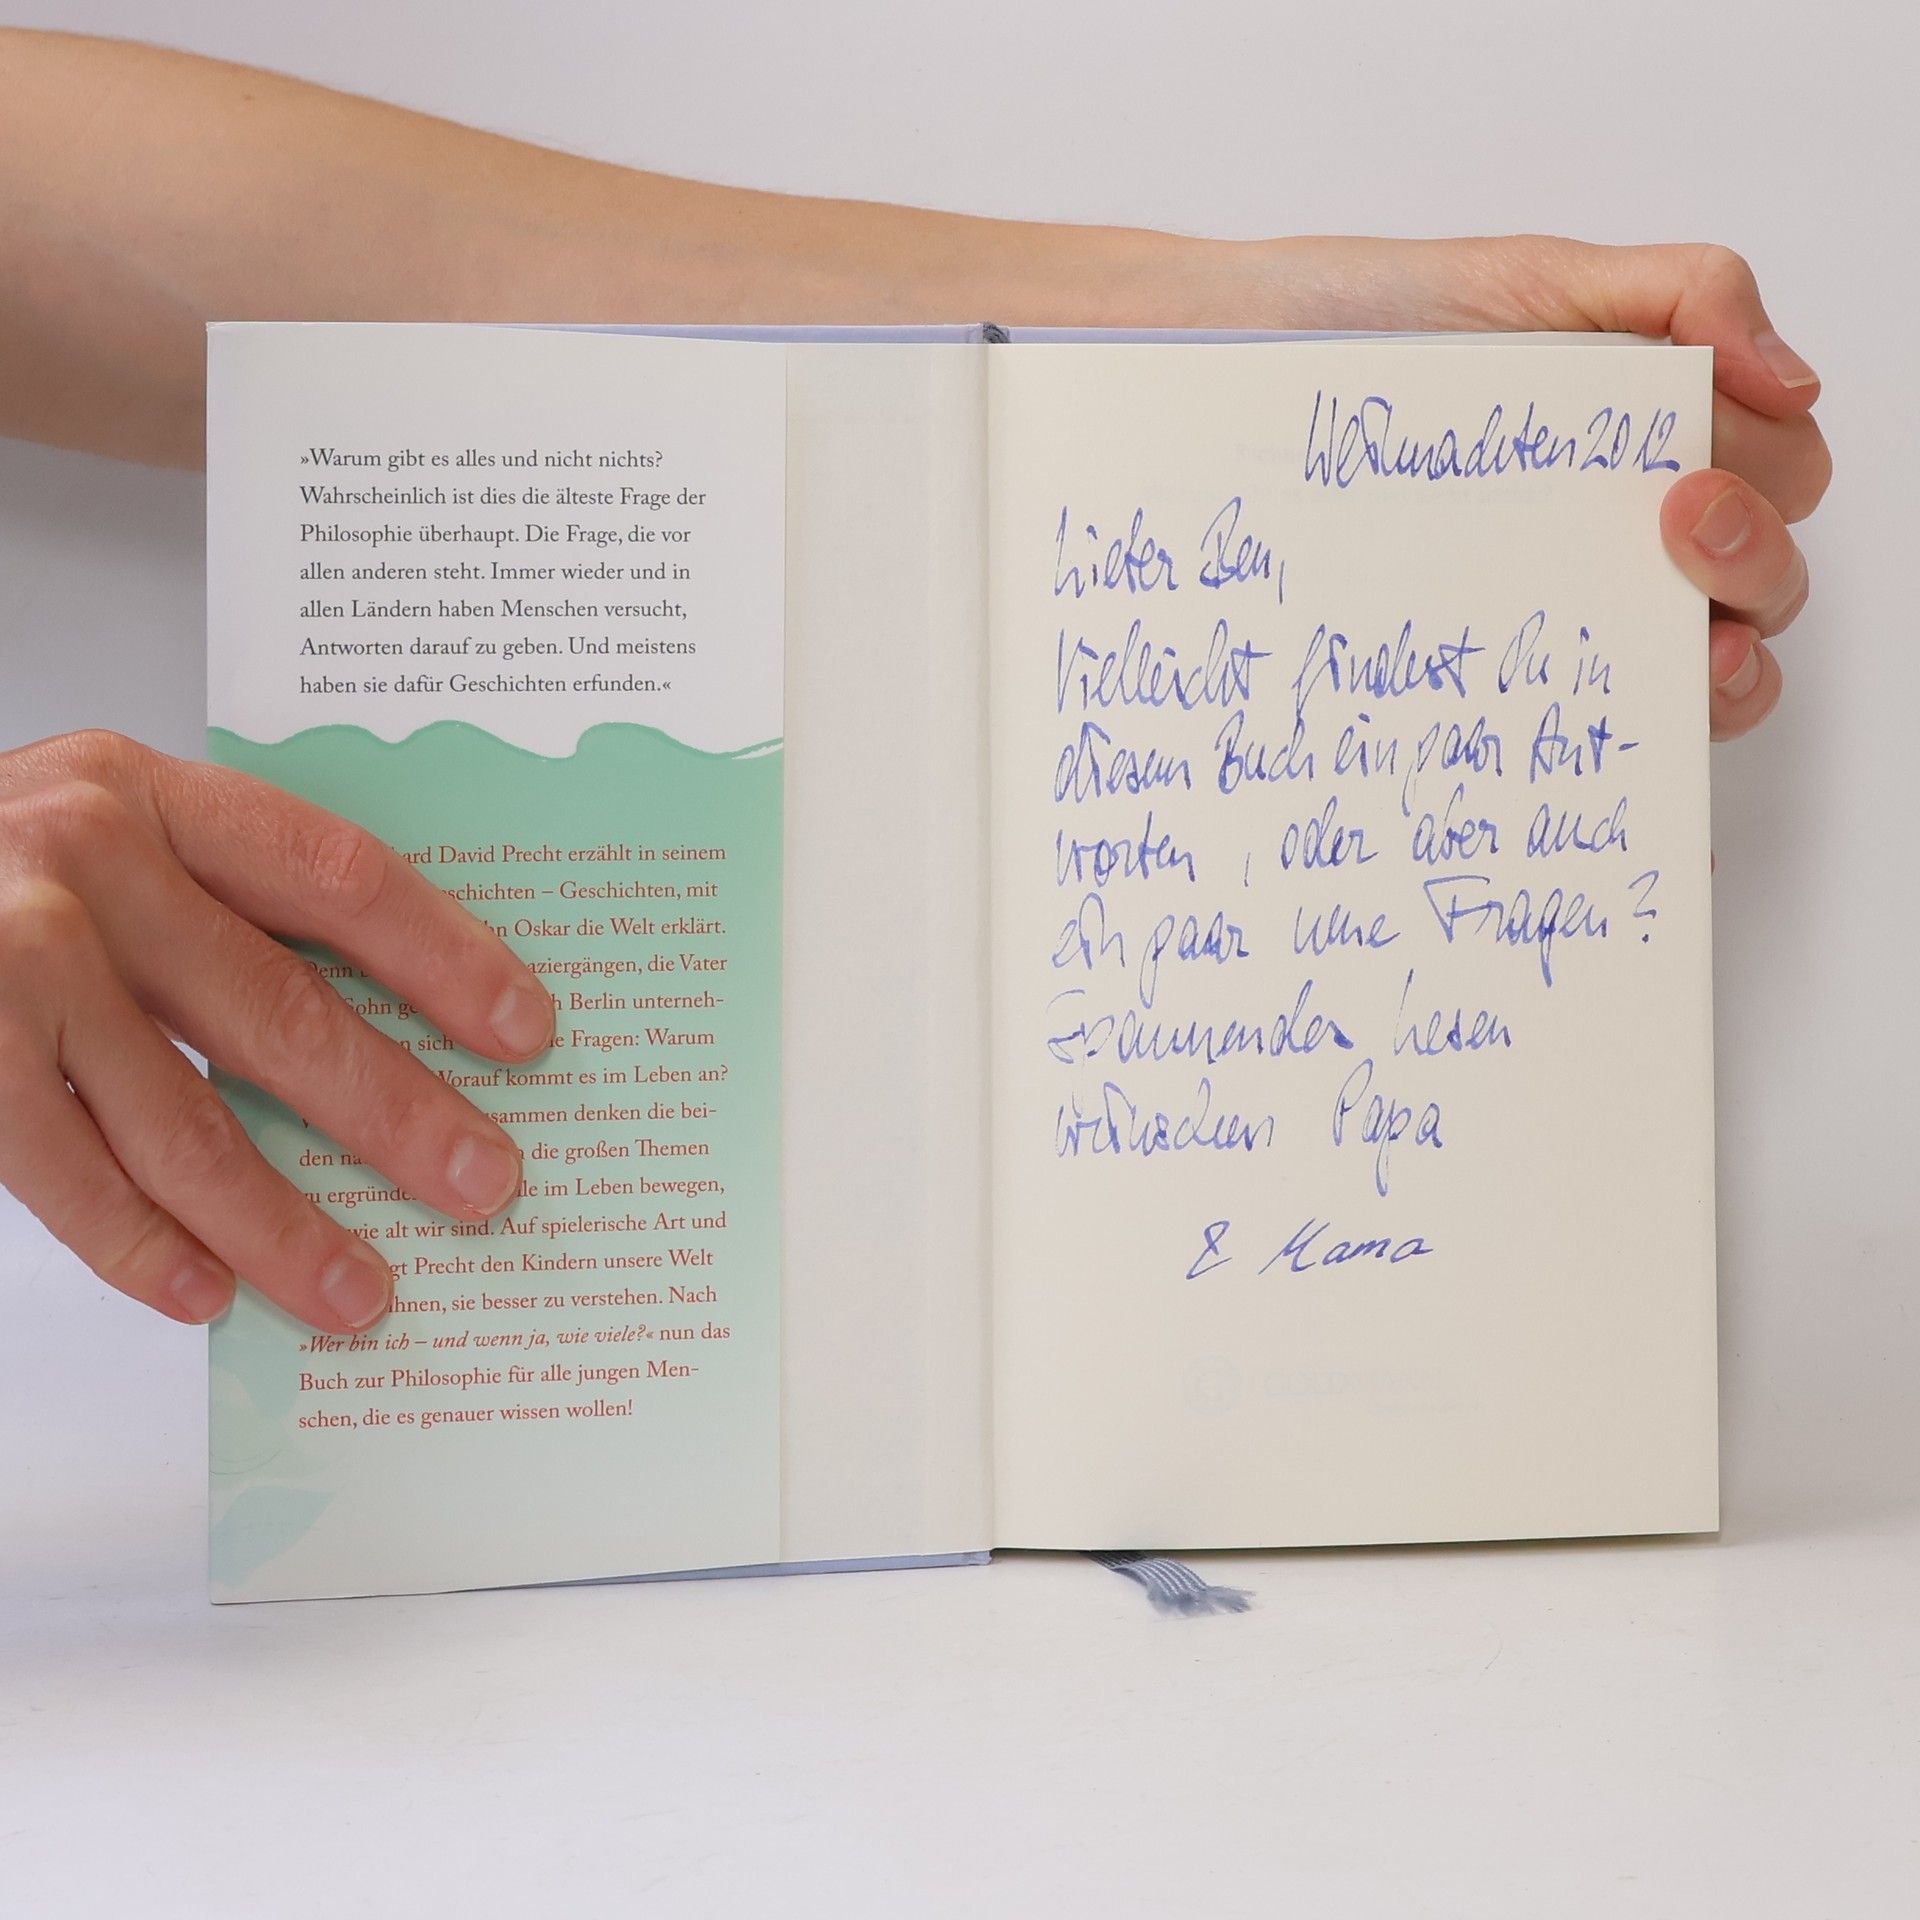 »Warum gibt es alles und nicht nichts?
Wahrscheinlich ist dies die älteste Frage der
Philosophie überhaupt. Die Frage, die vor
allen anderen steht. Immer wieder und in
allen Ländern haben Menschen versucht,
Antworten darauf zu geben. Und meistens
haben sie dafür Geschichten erfunden.«
David Precht erzählt in seinem
– Geschichten, mit
Oskar die Welt erklärt.
Denn die Vater
Sohn Berlin unterneh-
sich Fragen: Warum
Worauf kommt es im Leben an?
denken die bei-
den die großen Themen
zu im Leben bewegen,
wie alt wir sind. Auf spielerische Art und
Precht den Kindern unsere Welt
ihnen, sie besser zu verstehen. Nach
»Wer bin ich – und wenn ja, wie viele?« nun das
Buch zur Philosophie für alle jungen Men-
schen, die es genauer wissen wollen!
Weihnachten 2012
Lieber Ben,
Vielleicht findest Du in
diesem Buch ein paar Ant-
worten, oder aber auch
ein paar neue Fragen?
Spannendes Lesen
wünschen Papa
& Mama